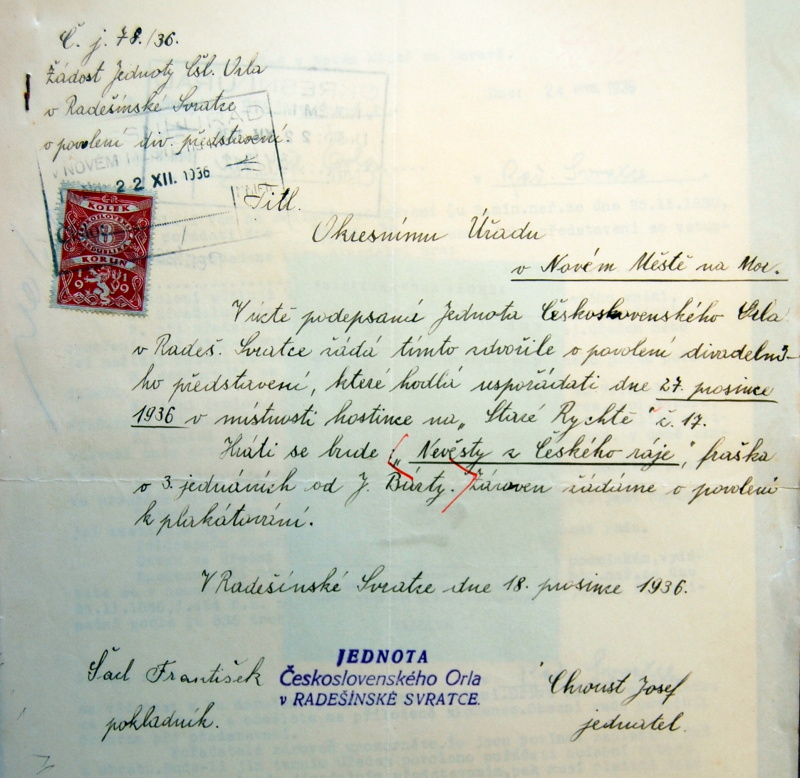 Č. j. 78./36.
Žádost Jednoty Čsl. Orla
v Radešínské Svratce
o povolení div. představení.
V NOVÉM
22 XII. 1936
KOLEK
KORUN
Titl.
Okresnímu Úřadu
v Novém Městě na Mor.
V úctě podepsaná Jednota Československého Orla
v Radeš. Svratce žádá tímto zdvořile o povolení divadelní-
ho představení, které hodlá uspořádati dne 27. prosince
1936 v místnosti hostince na „Staré Rychtě" č. 17.
Hráti se bude „Nevěsty z Českého ráje", fraška
o 3. jednáních od J. Bárty. Zároven žádáme o povolení
k plakátování.
V Radešínské Svratce dne 18. prosince 1936.
JEDNOTA
Československého Orla
v RADEŠÍNSKÉ SVRATCE.
Šacl František
pokladník.
Chroust Josef
jednatel.